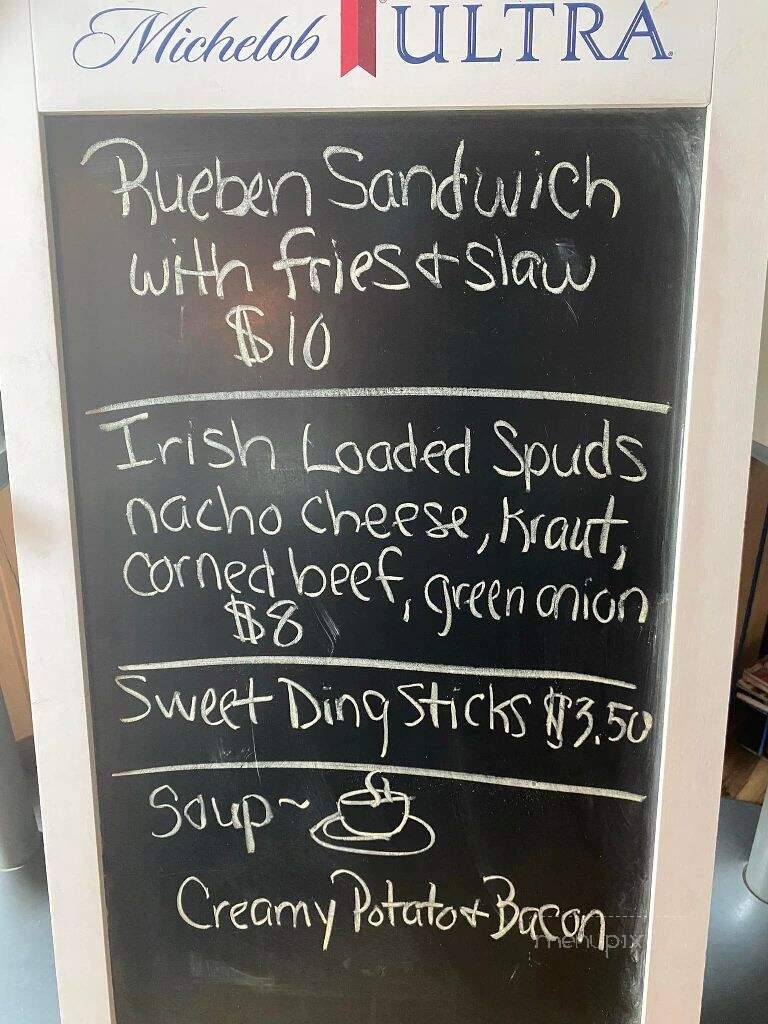 Michelob ULTRA
Rueben Sandwich
with fries & slaw
$10
Irish Loaded Spuds
nacho cheese, kraut,
corned beef, green onion
$8
Sweet Ding Sticks $3.50
Soup~
Creamy Potato & Bacon
menupix